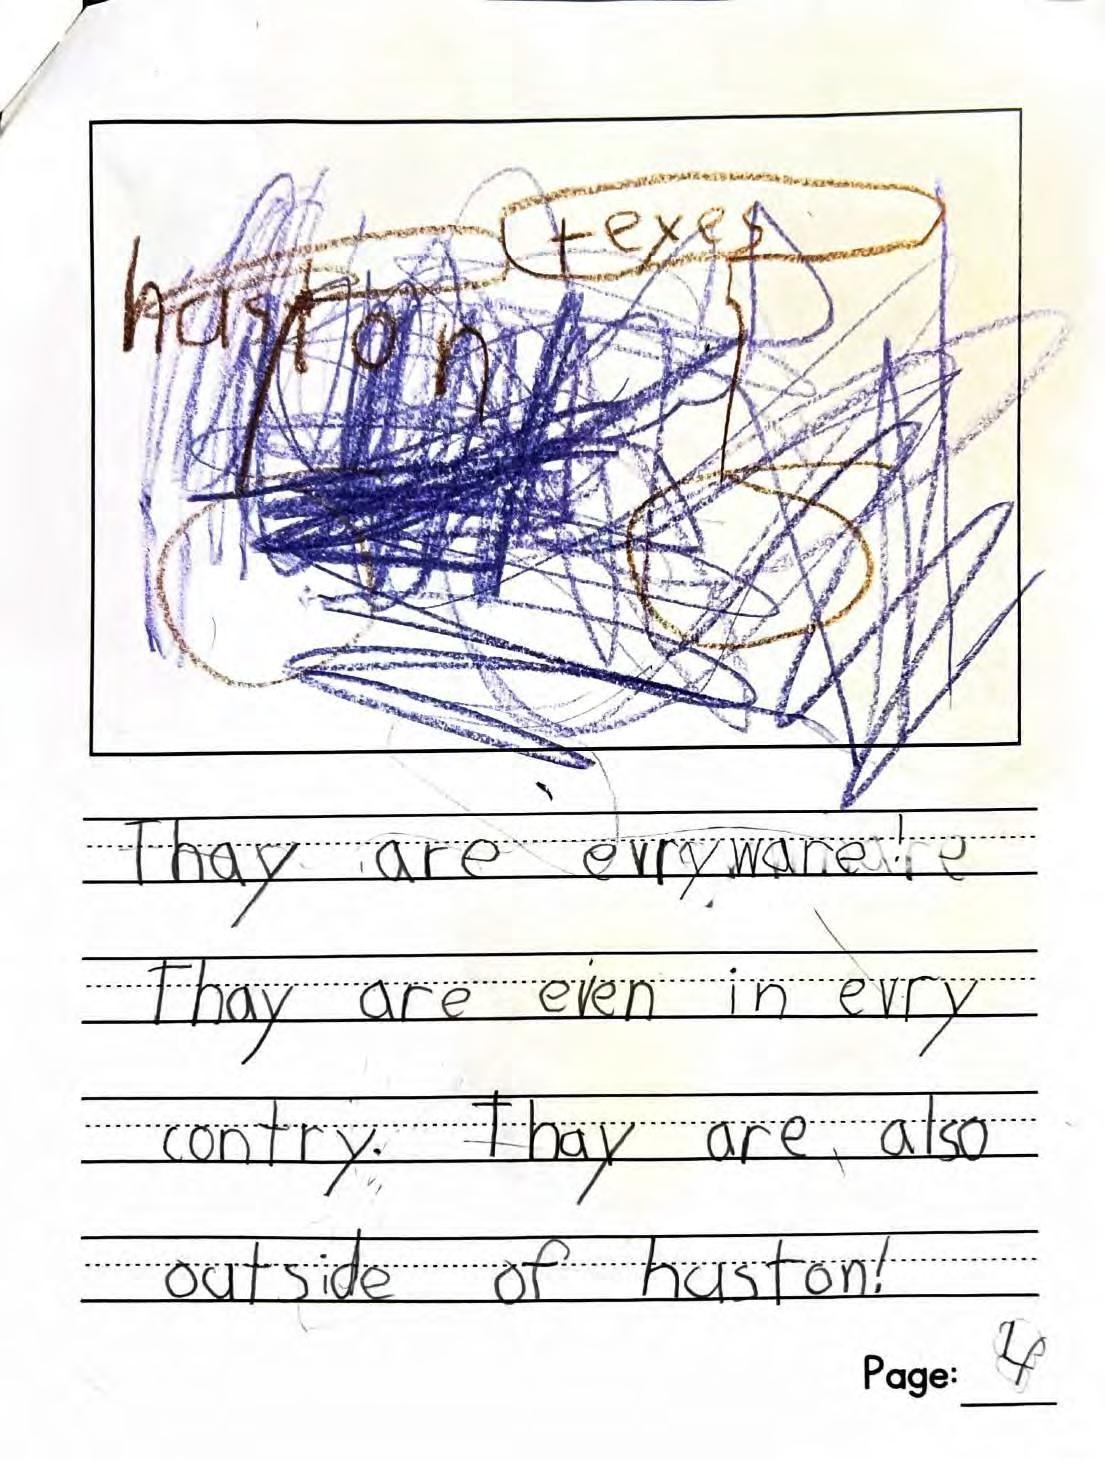 texes
huston
Thay are evryware!
Thay are even in evry
contry. Thay are also
outside of huston!
Page: 4